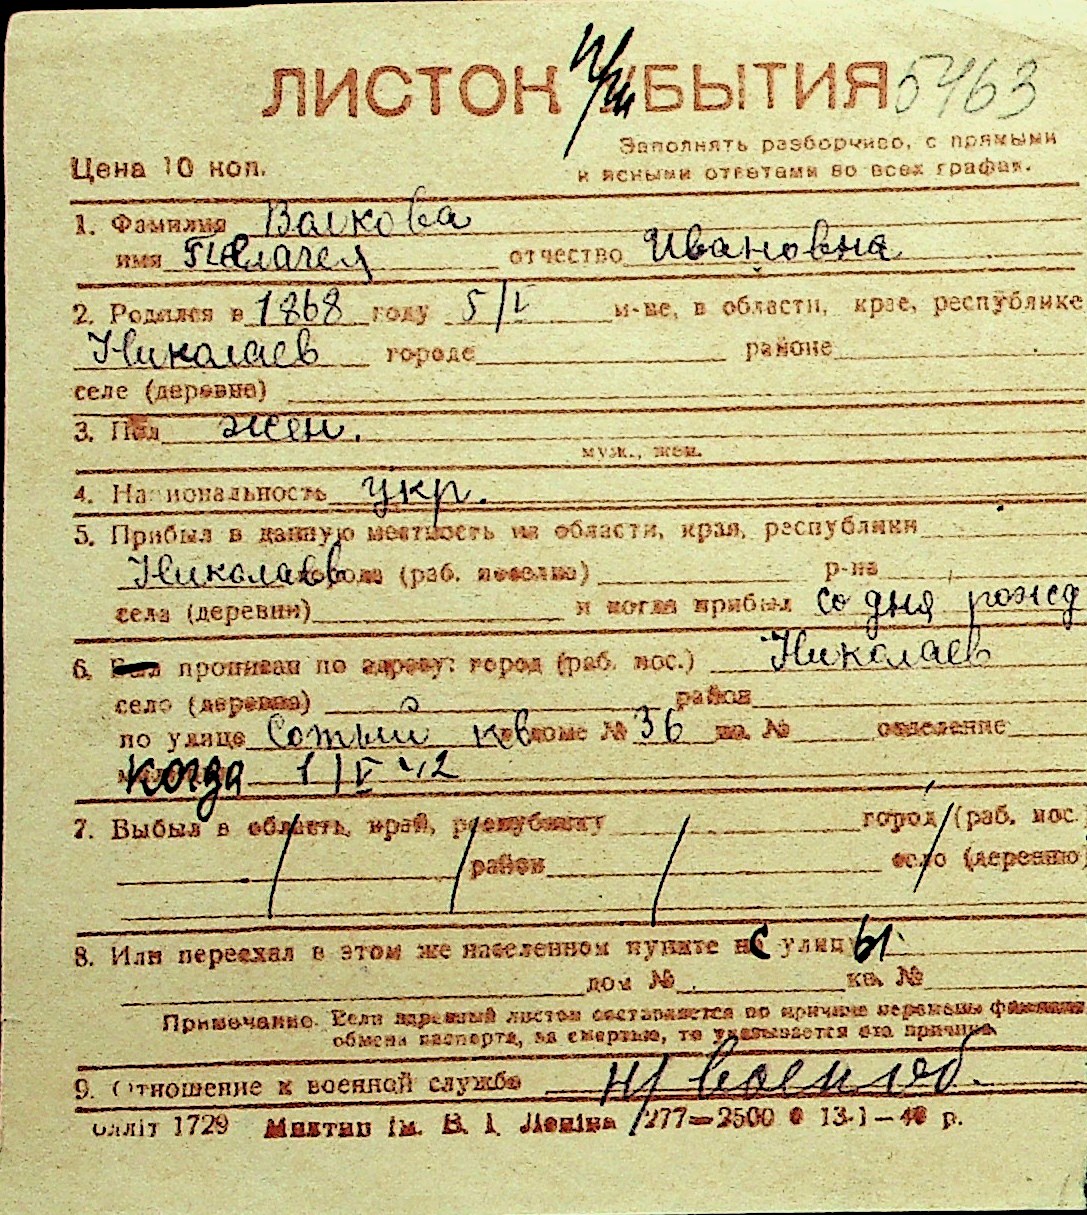 ЛИСТОК УБЫТИЯ 5463
Заполнять разборчиво, с прямыми
Цена 10 коп.
и ясными ответами во всех графах.
1. Фамилия Валкова
имя Пелагея отчество Ивановна
2. Родился в 1868 году 5/V м-це, в области, крае, республике
Николаев городе районе
селе (деревне)
3. Пол жен.
муж., жен.
4. Национальность укр.
5. Прибыл в данную местность из области, края, республики
Николаев города (раб. поселка) р-на
села (деревни) и когда прибыл со дня рожд
6. Был прописан по адресу: город (раб. пос.) Николаев
село (деревня) район
по улице Сотый кв доме № 36 кв. № отделение
когда 1/V 42
7. Выбыл в область, край, республику город (раб. пос.
район село (деревню)
8. Или переехал в этом же населенном пункте с улицы
дом № кв. №
Примечание. Если адресный листок составляется по причине перемены фамилии
обмена паспорта, за смертью, то указывается эта причина.
9. Отношение к военной службе н/военнооб.
Оллліт 1729 Миктип ім. В. І. Леніна 277—2500 13-1—4 р.